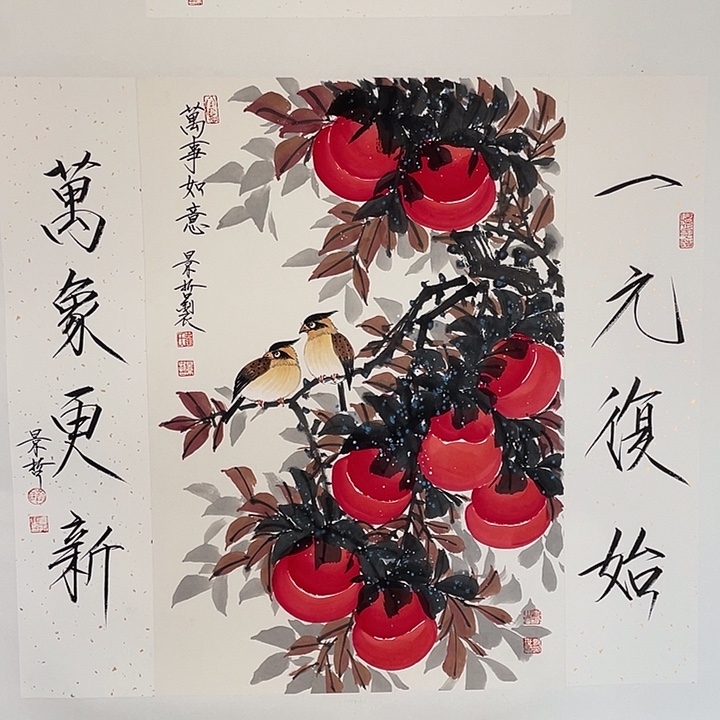 一元復始
萬事如意
萬象更新
景哲